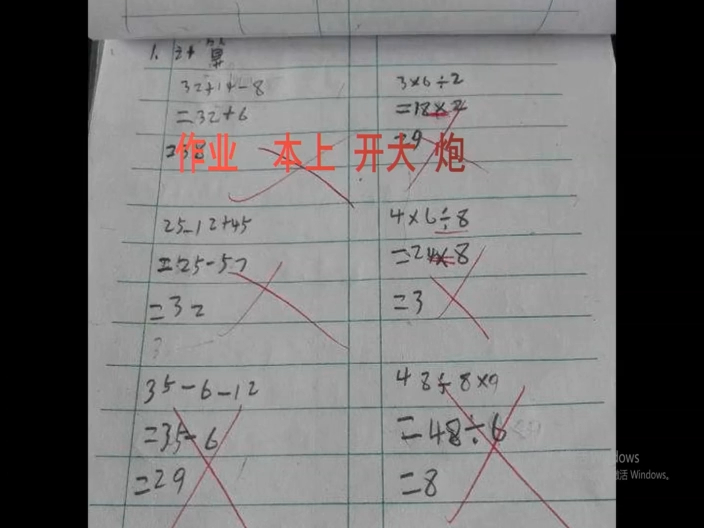 1. 计算
32+14-8
=32+6
=38
25-12+45
=25-57
=32
35-6-12
=35-6
=29
3×6÷2
=18×2
=9
4×6÷8
=24×8
=3
48÷8×9
=48÷6
=8
作业 本上 开大 炮
dows
激活 Windows。